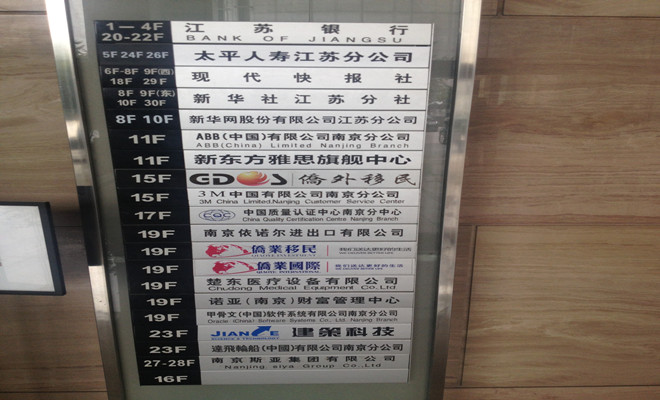 1—4F
20—22F
江苏银行
BANK OF JIANGSU
5F 24F 26F
太平人寿江苏分公司
6F-8F 9F(西)
18F 29F
现代快报社
8F 9F(东)
10F 30F
新华社江苏分社
8F 10F
新华网股份有限公司江苏分公司
11F
ABB(中国)有限公司南京分公司
ABB(China) Limited Nanjing Branch
11F
新东方雅思旗舰中心
15F
侨外移民
15F
3M中国有限公司南京分公司
3M China Limited.Nanjing Customer Service Center
17F
CQC
中国质量认证中心南京分中心
China Quality Certification Centre Nanjing Branch
19F
南京依诺尔进出口有限公司
19F
僑業移民
19F
僑業國際
19F
楚东医疗设备有限公司
Chudong Medical Equipment Co.,Ltd
19F
诺亚(南京)财富管理中心
19F
甲骨文(中国)软件系统有限公司南京分公司
Oracle (China) Software Systems Co., Ltd. Nanjing Branch
23F
建策科技
23F
達飛輪船(中國)有限公司南京分公司
27-28F
南京斯亚集团有限公司
Nanjing siya Group Co.,Ltd
16F